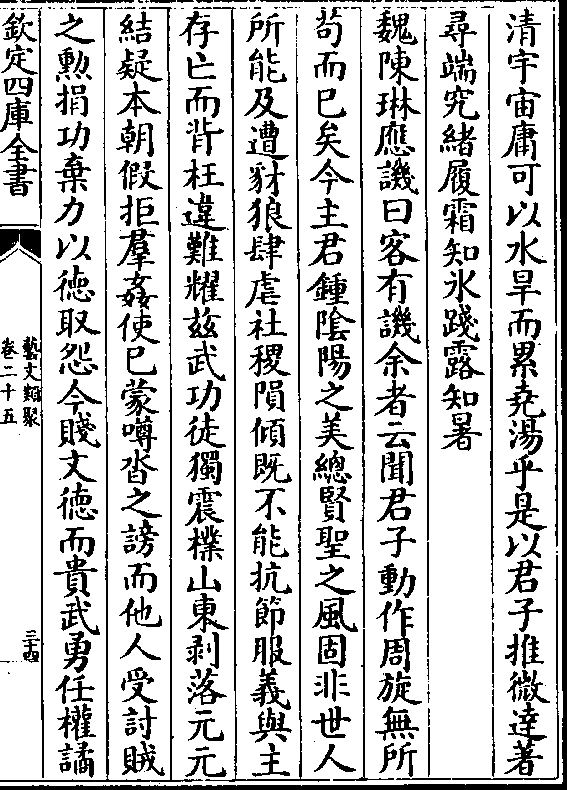 清宇宙庸可以水旱而累堯湯乎是以君子推微達著
尋端究緒履霜知氷踐露知暑
魏陳琳應譏曰客有譏余者云聞君子動作周旋無所
茍而已矣今主君鍾隂陽之美總賢聖之風固非世人
所能及遭豺狼肆虐社稷隕傾既不能抗節服義與主
存亡而背枉違難耀兹武功徒獨震樸山東剥落元元
結疑本朝假拒羣姦使已蒙噂沓之謗而他人受討賊
之勲捐功棄力以徳取怨今賤文徳而貴武勇任權譎
欽定四庫全書
藝文類聚
卷二十五
三十四